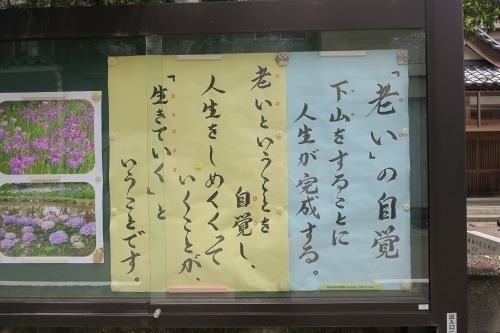 「老い」の自覚
下山をすることに
人生が完成する。
老いということを
自覚し、
人生をしめくくって
いくことが、
「生きていく」と
いうことです。
出入口